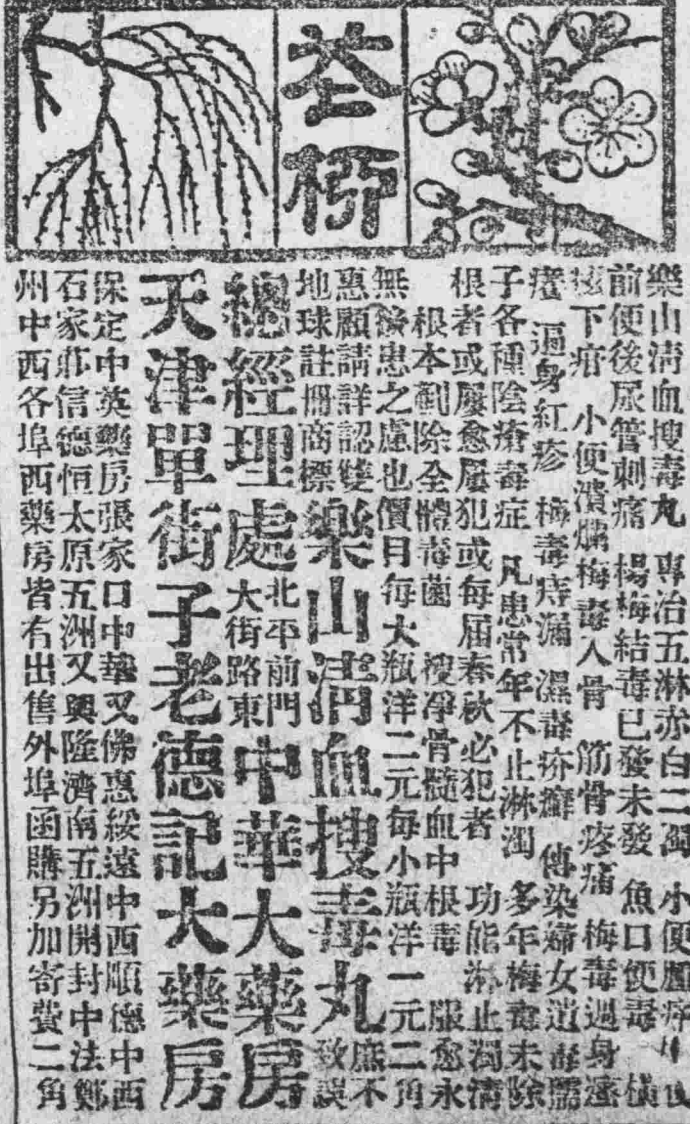 花柳
樂山清血搜毒丸　專治五淋赤白二濁　小便
前便後尿管刺痛　楊梅結毒已發未發　魚口便毒　橫
痃下疳　小便潰爛梅毒入骨　筋骨疼痛　梅毒過身遙
瘡　遍身紅疹　梅毒痔漏　濕毒疥癬　傳染婦女遺毒孺
子各種陰瘡毒症　凡患常年不止淋濁　多年梅毒未除
根者或屢愈屢犯或每届春秋必犯者　功能淋止濁清
根本剷除全體毒菌　搜凈骨髓血中根毒　服愈永
無後患之慮也價目每大瓶洋二元每小瓶洋一元二角
惠顧請詳認雙
地球註冊商標
樂山清血搜毒丸
庶不
致誤
總經理處
北平前門
大街路東
中華大藥房
天津單街子老德記大藥房
保定中英藥房張家口中華又佛惠綏遠中西順德中西
石家莊信德恒太原五洲又興隆濟南五洲開封中法鄭
州中西各埠西藥房皆有出售外埠函購另加寄費二角